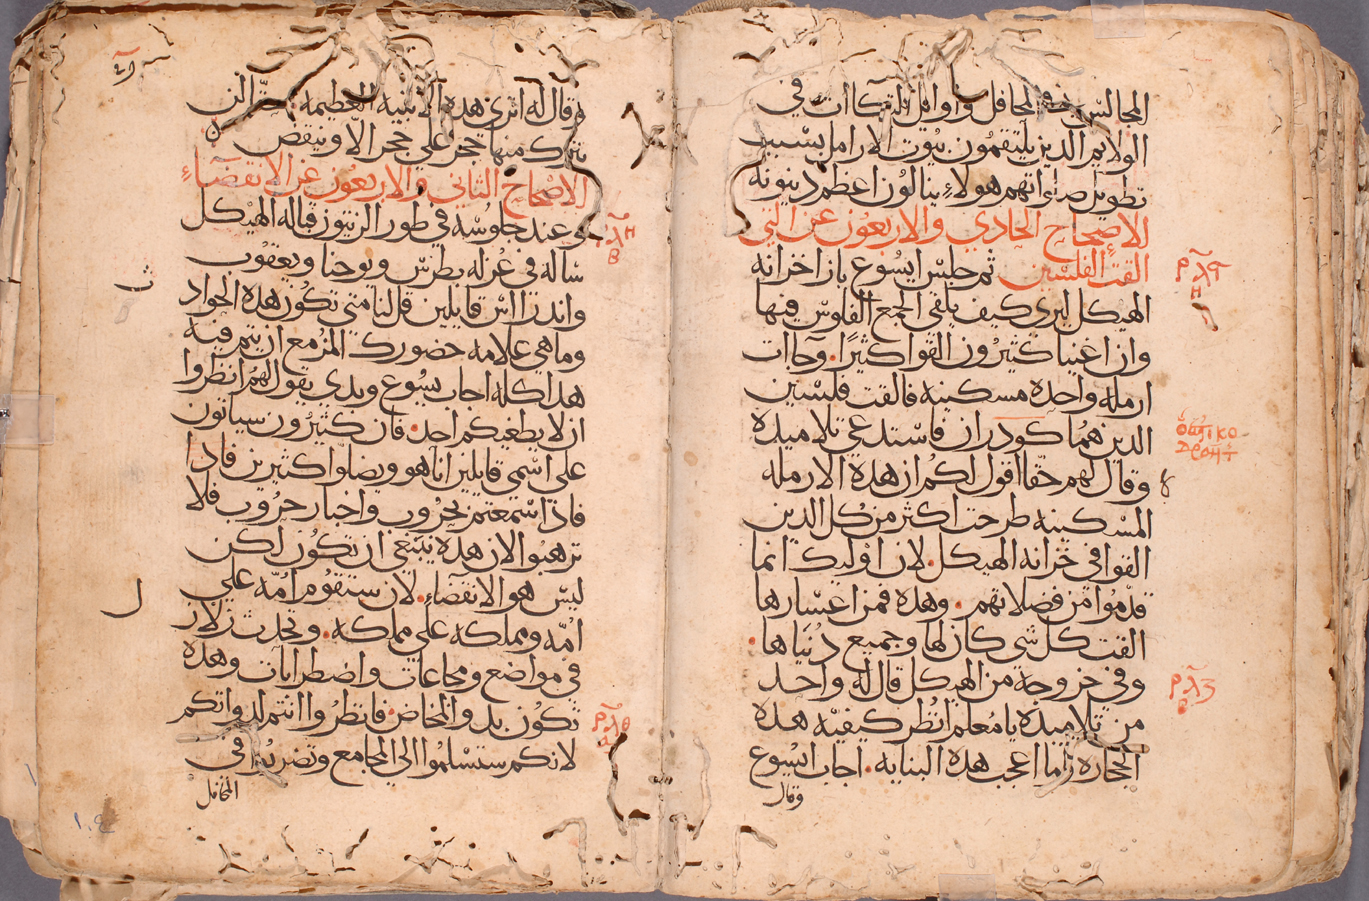 المجالس في المحافل واوايل المتكاات في
الولايم الذين يلتقمون بيوت الارامل بسبب
تطويل صلواتهم هولاء ينالون اعظم دينونه
الاصحاح الحادي والاربعون عن التي
القت الفلسين ثم جلس ايسوع بازا خزانه
الهيكل ليرى كيف يلقى الجمع الفلوس فيها
وان اغنيا كثيرون القوا كثيرًا. وجاات
ارمله واحده مسكينه فالقت فلسين
الذين هما كودران فاستدعي تلاميذه
وقال لهم حقا اقول لكم ان هده الارمله
المسكينه طرحت اكثر من كل الدين
القوا في خزانه الهيكل. لان اوليك انما
قدموا من فضلاتهم. وهده فمن اعسارها
القت كل شي كان لها وجميع دنياها.
وفي خروجه من الهيكل قال له واحد
من تلاميذه يا معلم انظر كيفيه هده
الحجاره وما اعجب هده البنايه. اجاب ايسوع
وقال
وقال له اترى هده الابنيه العظيمه لن
يترك منها حجر علي حجر الا وينقض
الاصحاح الثاني والاربعون عن الانقضاء
وعند جلوسه في طور الزيتون قباله الهيكل
ساله في عزله بطرس ويوحنا ويعقوب
واندراس قايلين قل لنا متي تكون هده الحواد
وما هي علامه حضورك المزمع ان يتم فيه
هدا كله اجاب يسوع وبدي يقول لهم انظروا
ان لا يطغيكم احد. فان كثيرون سياتون
علي اسمي قايلين انا هو ويضلوا كثيرين فادا
فادا استمعتم بحروب واخبار حروب فلا
ترهبوا لان هده ينبغي ان تكون لكن
ليس هو الانقضاء. لان ستقوم امه علي
امه ومملكه علي مملكه. وتحدث زلازل
في مواضع ومجاعات واضطرابات وهده
تكون بدو المخاض. فانظروا انتم لدواتكم
لانكم ستسلموا الي المجامع وتضربوا في
المحافل